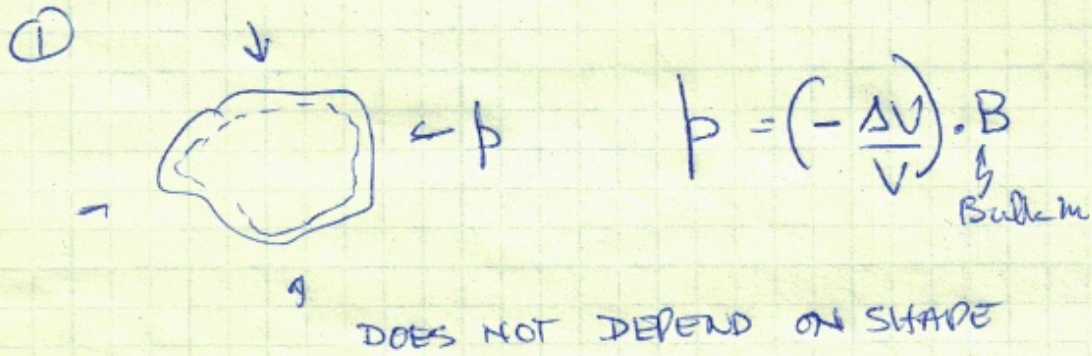 ①
p
p = (- ΔV/V) . B
Bulk m
DOES NOT DEPEND ON SHAPE